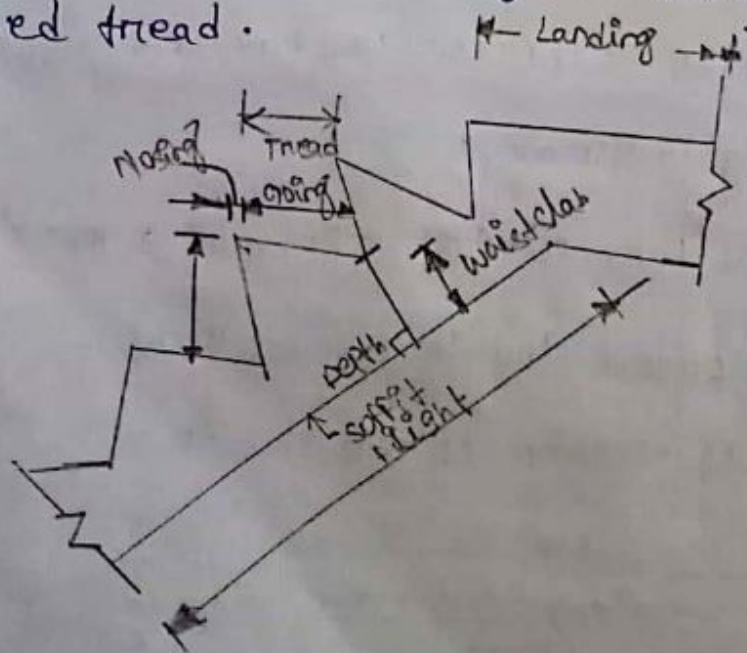 ed tread.
Landing
Nosing
Tread
Going
waist slab
Depth
soffit
flight